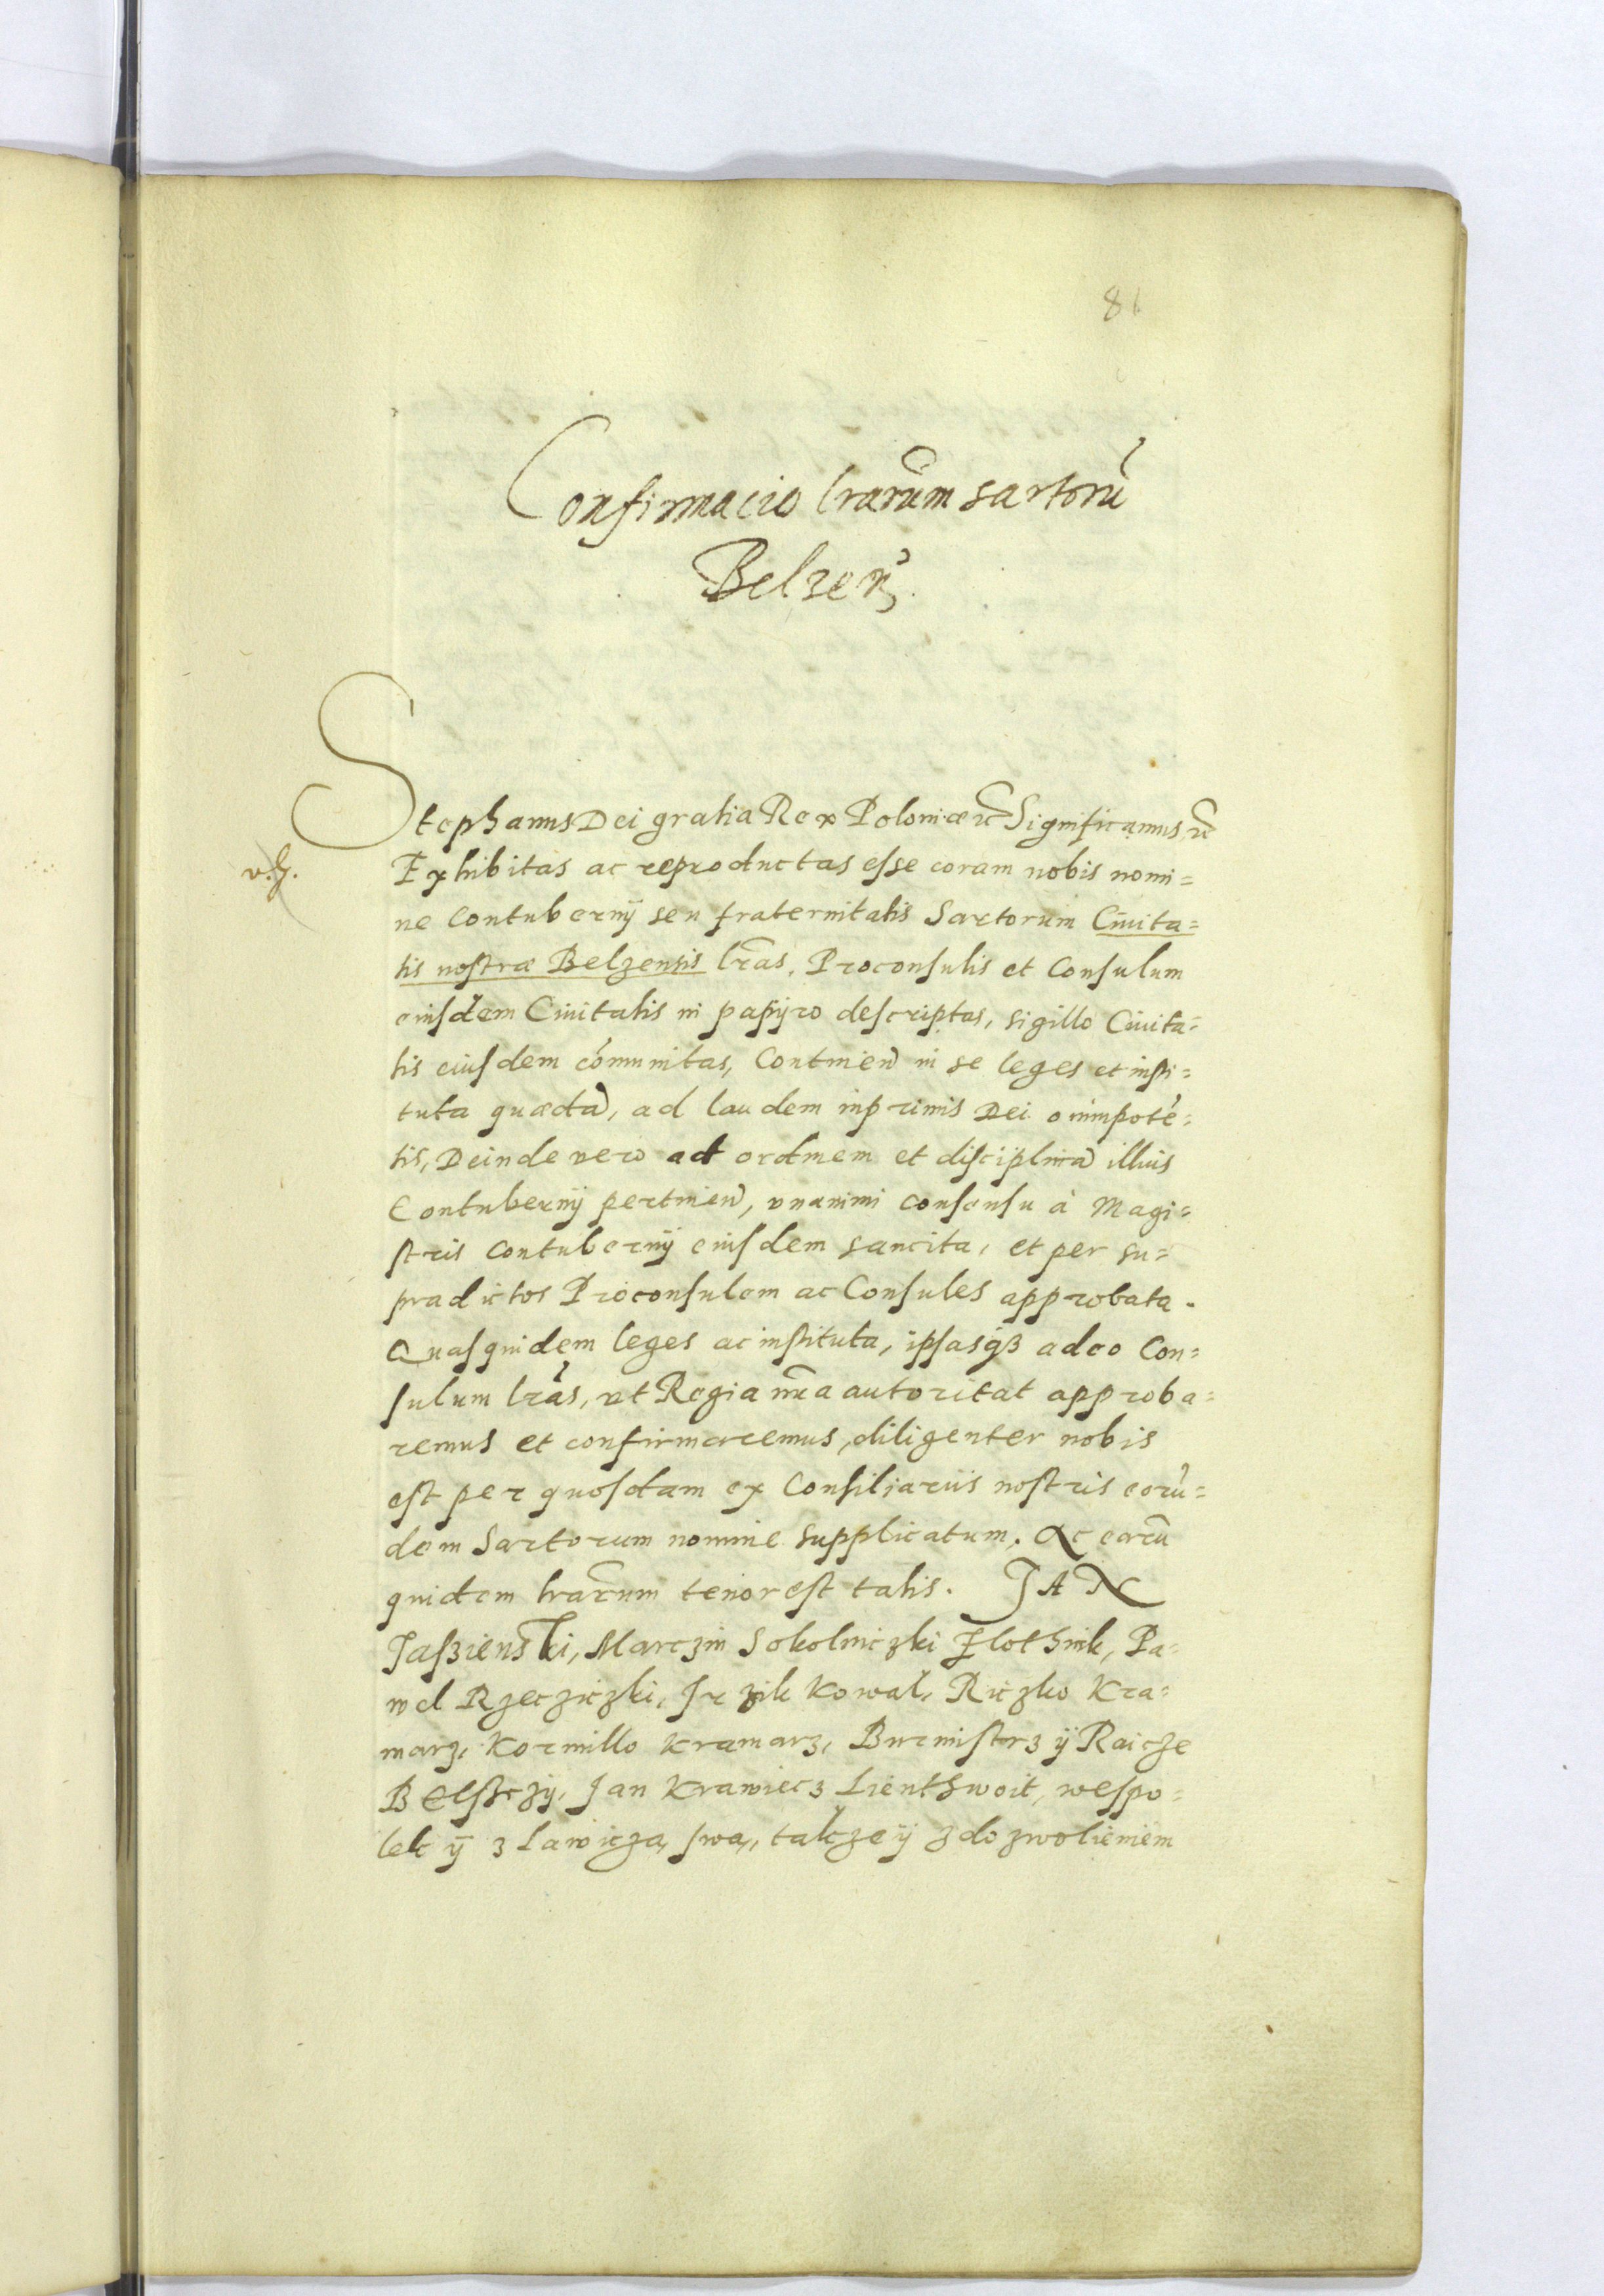 81
Confirmacio lrarum sartorũ
Belzen̄.
Stephanus Dei gratia Rex Poloniæ etc Significamus etc
v.g.
Exhibitas ac reproductas esse coram nobis nomi=
ne Contubernÿ seu fraternitatis Sartorum Ciuita=
tis nostræ Belzensis lr̃as, Proconsulis et Consulum
eiusdem Ciuitatis in papÿro descriptas, sigillo Ciuita=
tis eiusdem cõmunitas, Continen̄ in se leges et insti=
tuta quædã, ad laudem inprimis Dei omnipotẽ=
tis, Deinde vero ad ordinem et disciplinã illius
Contubernÿ pertinen̄, vnanimi consensu à Magi=
stris Contubernÿ eiusdem sancita, et per su=
pradictos Proconsulem ac Consules approbata.
Quasquidem leges ac instituta, ipsasqꝫ adeo Con=
sulum lr̃as, vt Regia nr̃a autoritat approba=
remus et confirmaremus, diligenter nobis
est per quosdam ex Consiliariis nostris eorũ=
dem Sartorum nomine supplicatum. Ac earũ
quidem lrarum tenor est talis. JAN
Jaszienski, Marczin Sokolniczki Zlothnik, Pa=
wel Rzecziczki, Jrzik Kowal, Riczko Kra=
marz, Kormillo Kramarz, Burmistrz ÿ Raicze
Belszczÿ, Jan Krawiecz Lienthwoit, wespo=
lek ÿ z Lawiczą swą, takze ÿ z dozwoliemiem